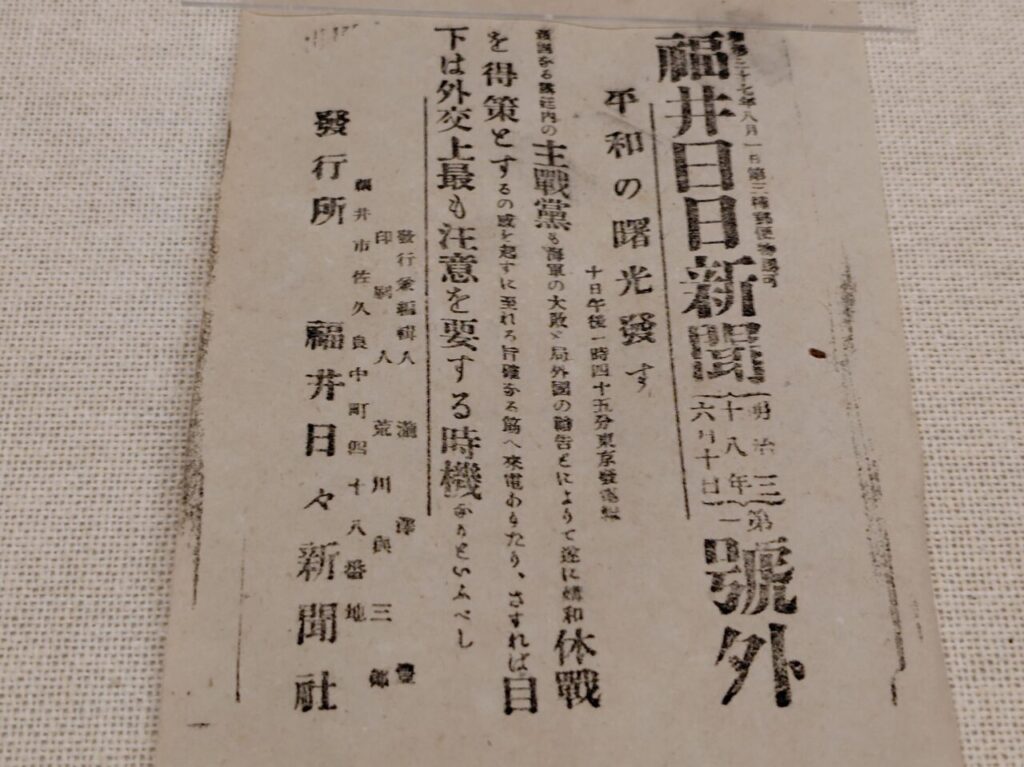 三十七年八月一日第三種郵便物認可
福井日日新聞
明治三
十八年
六月十日
第一
號外
平和の曙光發す
十日午後一時四十五分東京發電報
内の主戰黨も海軍の大敗と局外國の勸告とによりて遂に講和休戰
を得策とするの感を起すに至れる旨確なる筋へ來電ありたり、さすれば目
下は外交上最も注意を要する時機なりといふべし
發行兼編輯人 瀧澤豊
印刷人 荒川與三郎
福井市佐久良中町四十八番地
發行所 福井日々新聞社